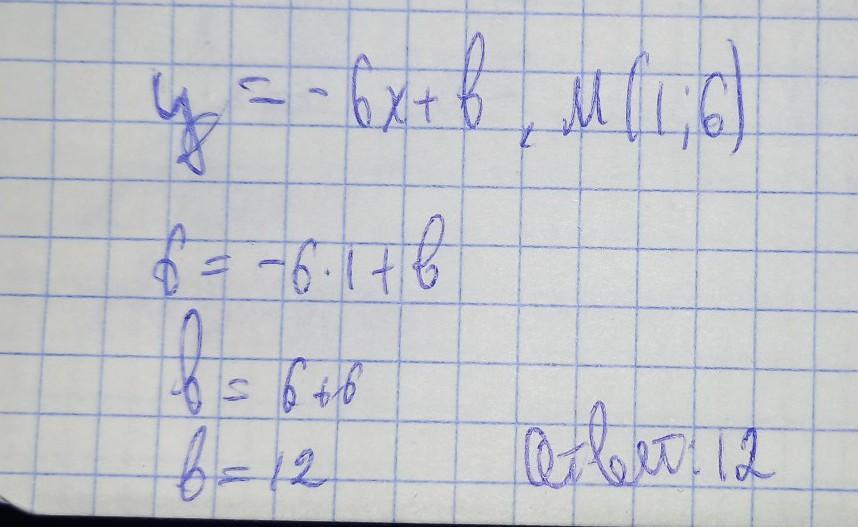 y = - 6x + b, M(1;6)
6 = -6·1 + b
b = 6+6
b = 12
Ответ: 12